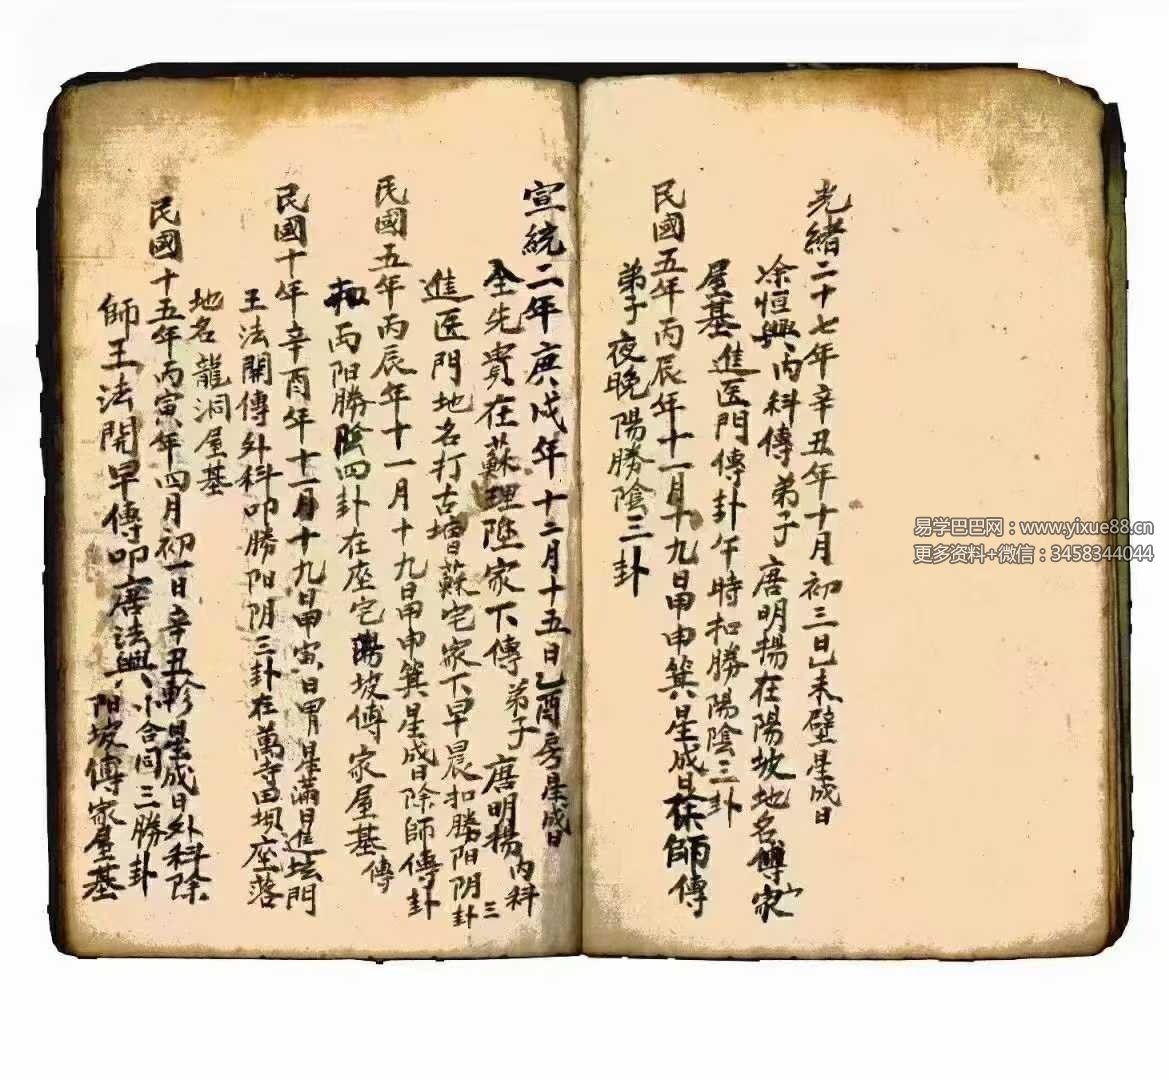 光緒二十七年辛丑年十月初三日乙未壁星成日
涂恒興、内科傳弟子唐明揚在陽坡地名傅家
屋基進医門傳卦午時扣勝陽陰三卦
民國五年丙辰年十一月十九日甲申箕星成日 師傳
弟子夜晚陽勝陰三卦
宣統二年庚戌年十二月十五日乙酉房星成日
全先貴在蘇理陞家下傳弟子唐明揚内科
進医門地名打古 蘇宅家下早晨扣勝阳阴三卦
民國五年丙辰年十一月十九日甲申箕星成日除師傳卦
丙阳勝陰四卦在座宅陽坡傅家屋基傳
民國十年辛酉年十一月十九日甲寅日胃星滿日進坛門
王法開傳外科叩勝阳阴三卦在萬寺田垻座落
地名龍洞屋基
民國十五年丙寅年四月初一日辛丑軫星成日外科除
師王法開早傳叩唐法興、小合同三勝卦
阳坡傅家屋基
易学巴巴网：www.yixue88.cn
更多资料+微信：3458344044